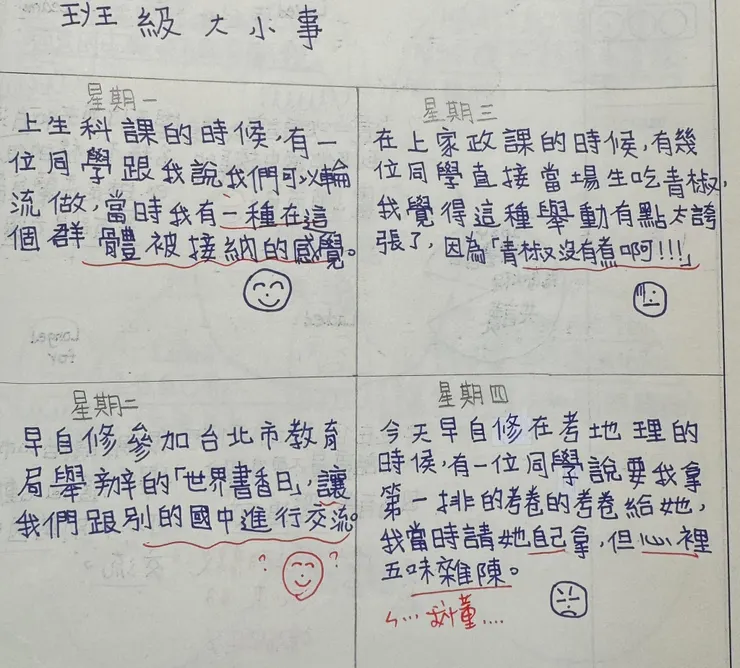 班級大小事
星期一
上生科課的時候,有一
位同學跟我說我們可以輪
流做,當時我有一種在這
個群體被接納的感覺。
星期三
在上家政課的時候,有幾
位同學直接當場生吃青椒,
我覺得這種舉動有點太誇
張了,因為「青椒沒有煮啊!!!」
星期二
早自修參加台北市教育
局舉辦的「世界書香日」,讓
我們跟別的國中進行交流。
? ?
星期四
今天早自修在考地理的
時候,有一位同學說要我拿
第一排的考卷的考卷給她,
我當時請她自己拿,但心裡
五味雜陳。
ㄣ…我懂…